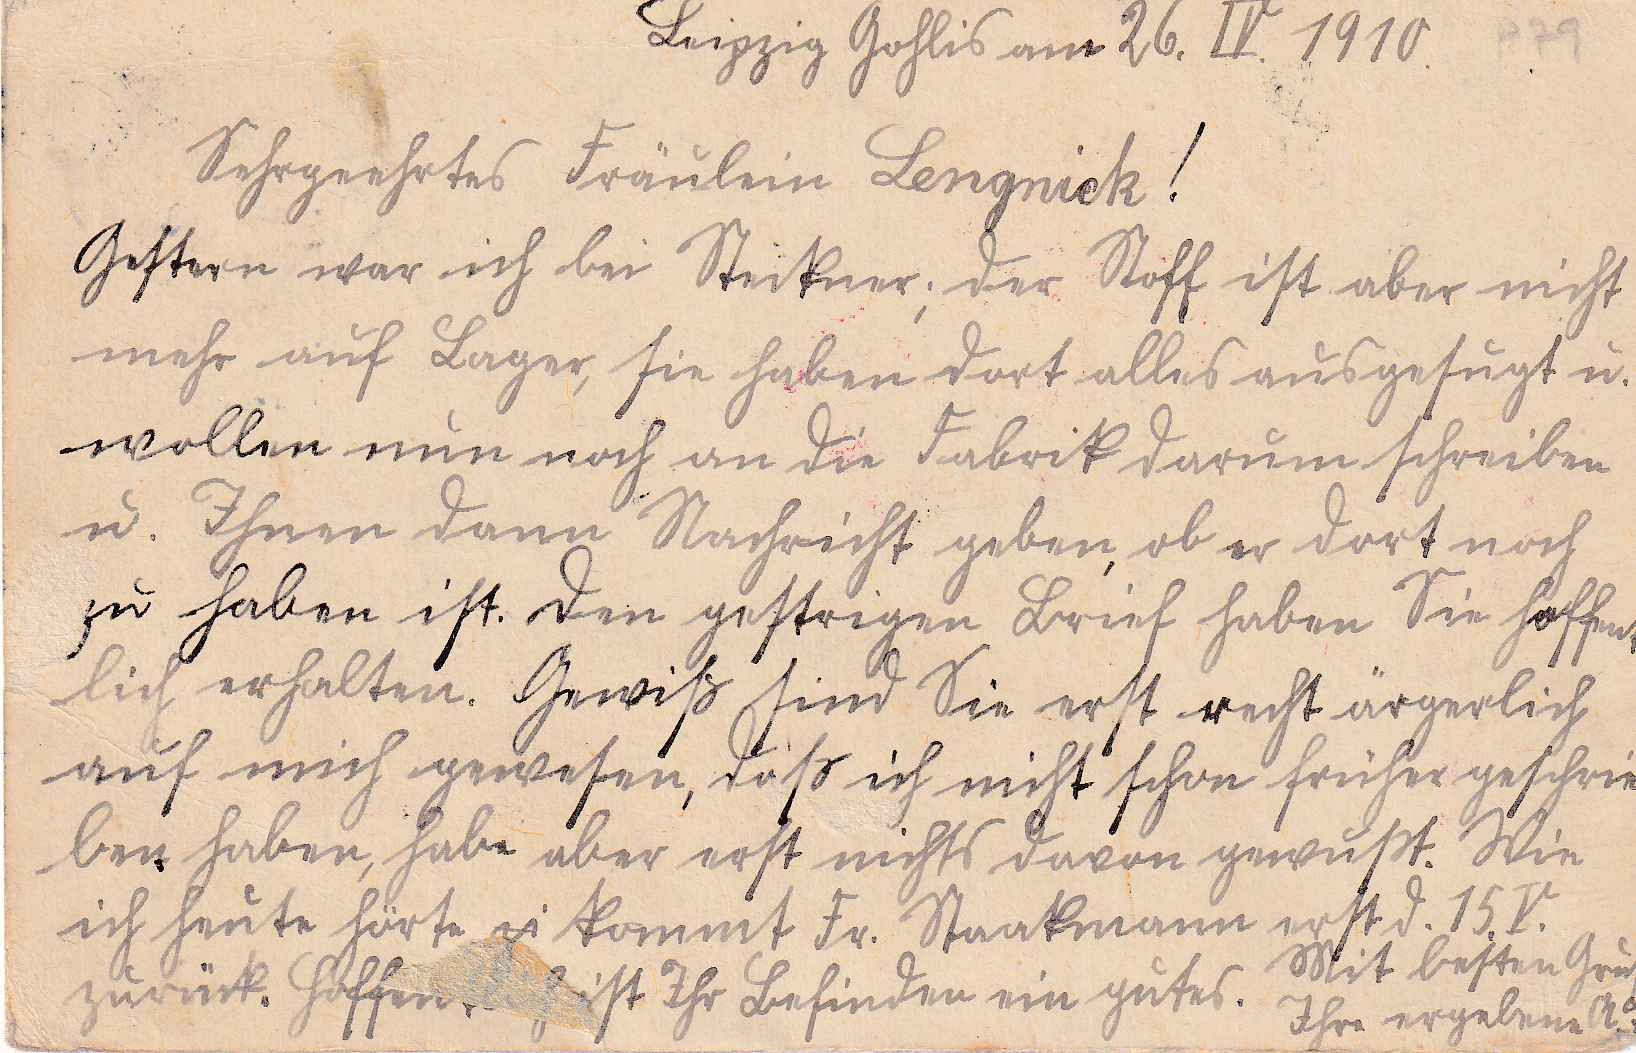 Leipzig Gohlis am 26. IV. 1910.
Sehrgeehrtes Fräulein Lengnick!
Gestern war ich bei Steckner, der Stoff ist aber nicht
mehr auf Lager, sie haben dort alles ausgesugt u.
wollen nun noch an die Fabrik darum schreiben
u. Ihnen dann Nachricht geben, ob er dort noch
zu haben ist. Den gestrigen Brief haben Sie hoffent
lich erhalten. Gewiß sind Sie erst recht ärgerlich
auf mich gewesen, daß ich nicht schon früher geschrie
ben haben, habe aber erst nichts davon gewußt. Wie
ich heute hörte kommt Fr. Staakmann erst d. 15. V.
zurück. ist Ihr Befinden ein gutes. Mit besten Gruß
Ihre ergebene